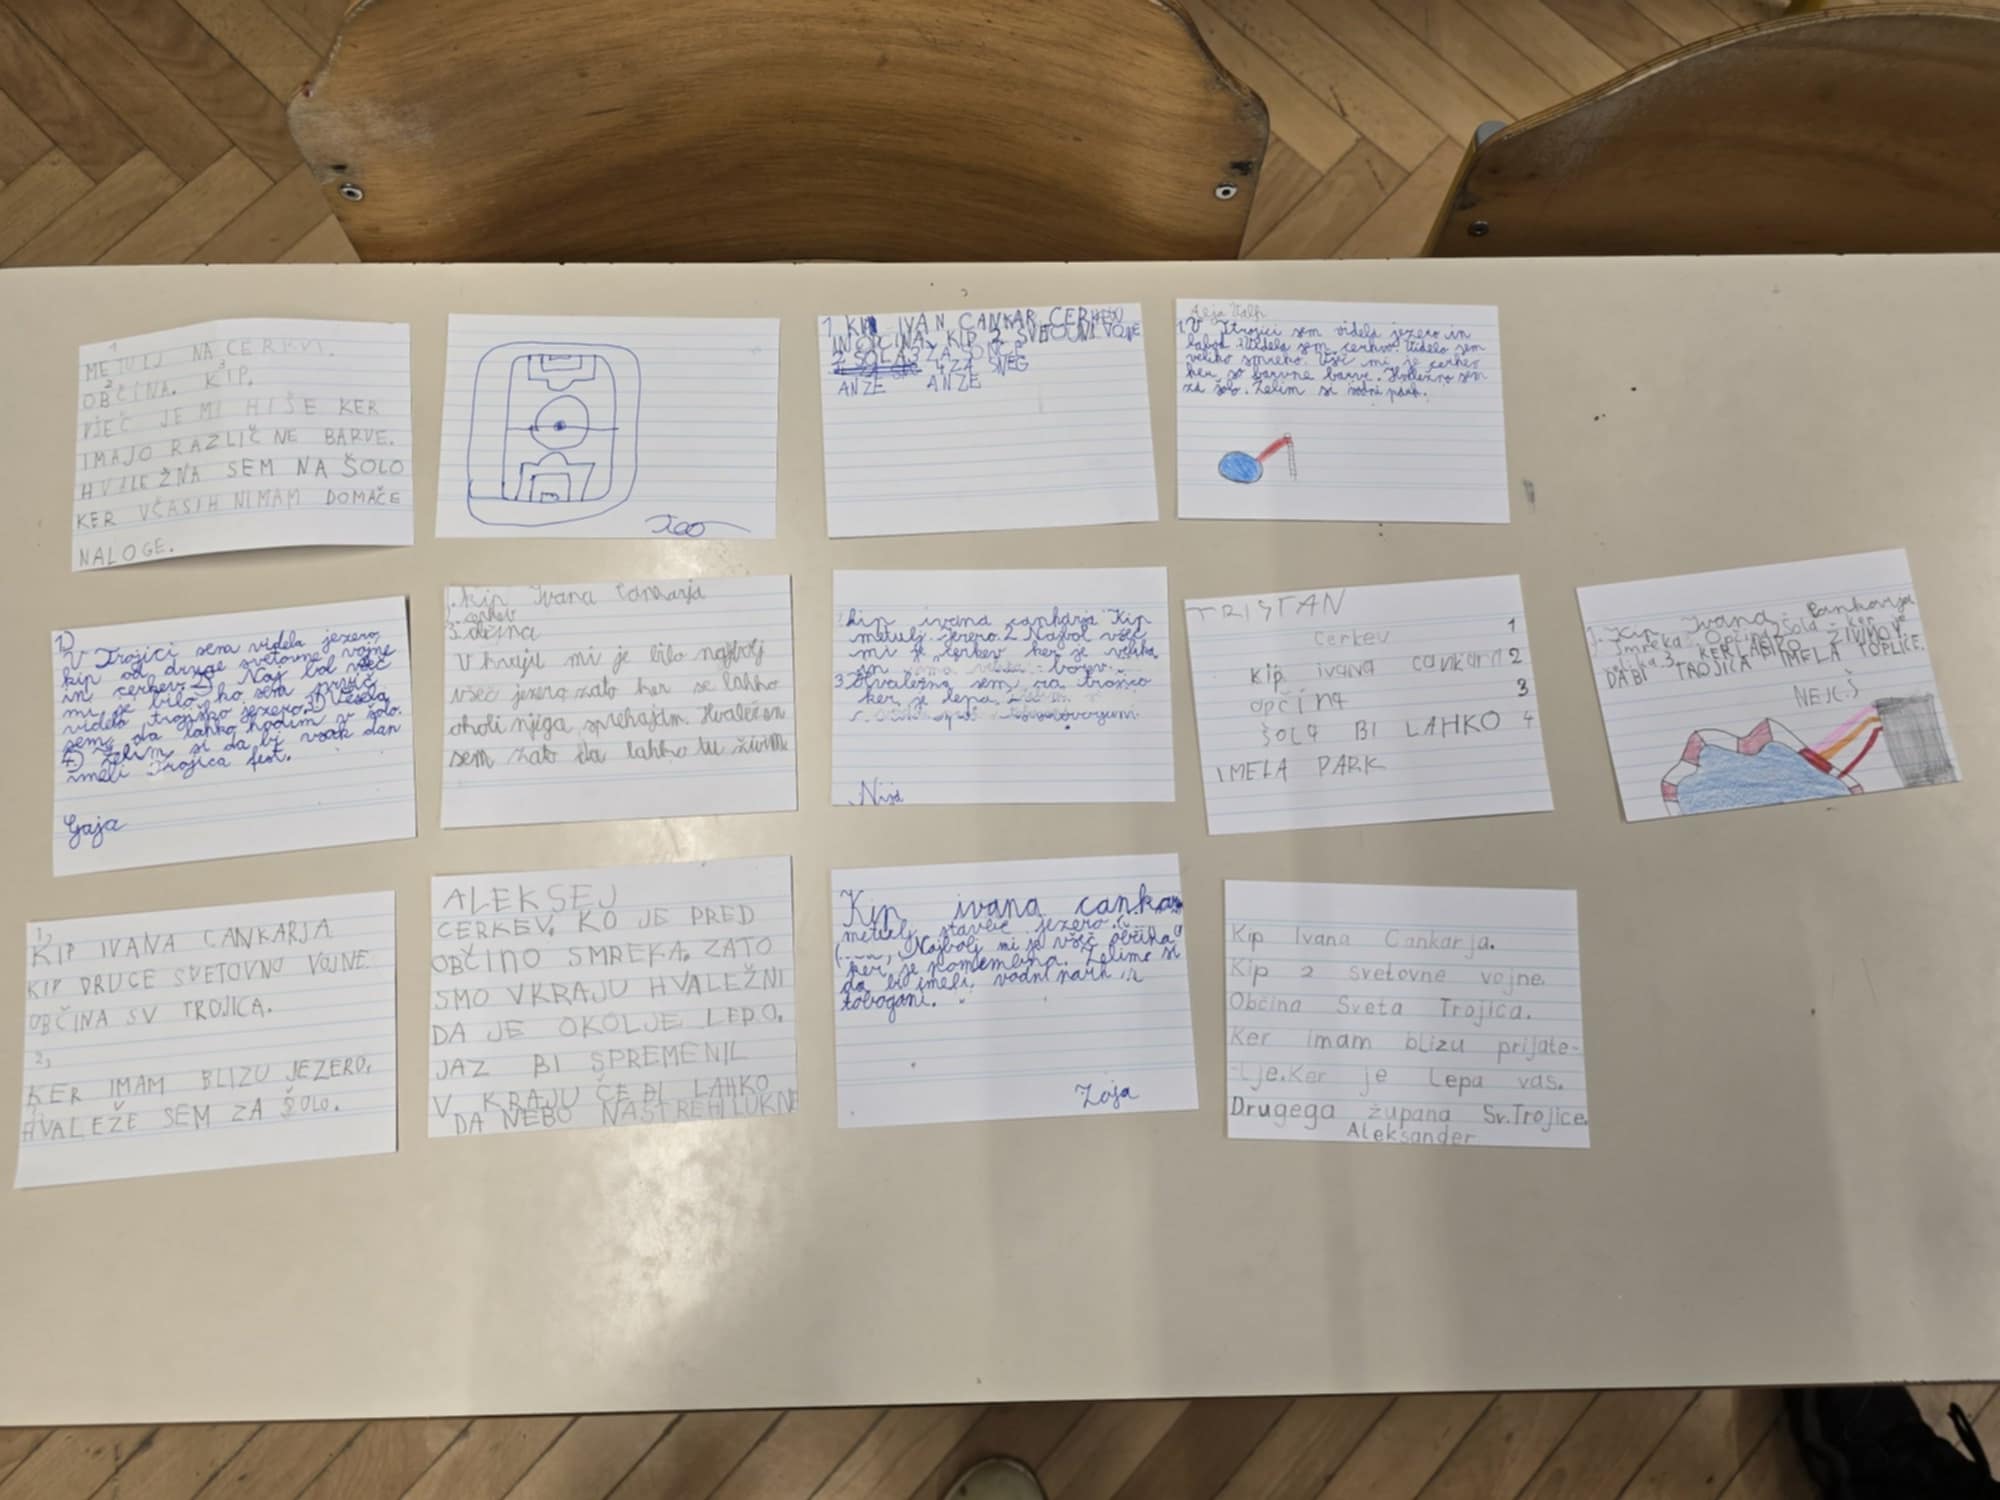 1
METULJ NA CERKVI.
2 3
OBČINA. KIP.
VŠEČ JE MI HIŠE KER
IMAJO RAZLIČNE BARVE.
HVALEŽNA SEM NA ŠOLO
KER VČASIH NIMAM DOMAČE
NALOGE.
Teo
1 KIP IVAN CANKAR CERKEV
IN OPČINA, KIP 2 SVETOUNI VOJNE
2 ŠOLA 3 ZA SONCE
4 ZA SNEG
ANŽE ANŽE
1. V Trojici sem videla jezero in
labod. Videla sem cerkvo. Videlo sem
veliko smreko. Všeč mi je cerkev
ker so barvne barve. Hvaležno sem
za šolo. Želim si vodni park.
1)
V Trojici sem videla jezero,
kip od druge svetovne vojne
in cerkev. 2) Naj bol všeč
mi je bilo ko sem prvič
videla trojiško jezero. 3) Vesela
sem, da lahko hodim v šolo.
4) Želim si da bi vsak dan
imeli Trojica fest.
Gaja
1. kip Ivana Cankarja
2. cerkev
3. občina
V kraju mi je bilo najbolj
všeč jezero zato ker se lahko
okoli njega sprehajam. Hvaležen
sem zato da lahko tu živim
1. kip ivana cankarja Kip
metulj. jezero. 2. Najbol všeč
mi je cerkev ker je velika
in barev.
3. Hvaležna sem za trojico
ker je lepa.
Nija
TRISTAN
cerkev 1
kip ivana cankarja 2
opčina 3
šola BI LAHKO 4
IMELA PARK
1. Kip Ivana Cankarja
Smreka Opčina Šola ker je
velika. 3. KER LAHKO ŽIVIM. 4.
DA BI TROJICA IMELA TOPLICE.
NEJC. Š
1,
KIP IVANA CANKARJA
KIP DRUGE SVETOVNO VOJNE
OBČINA SV TROJICA.
2,
KER IMAM BLIZU JEZERO,
HVALEŽE SEM ZA ŠOLO.
ALEKSEJ
CERKEV, KO JE PRED
OBČINO SMREKA. ZATO
SMO V KRAJU HVALEŽNI
DA JE OKOLJE LEPO.
JAZ BI SPREMENIL
V KRAJU ČE BI LAHKO
DA NEBO NA STREHI LUKNE
Kip ivana cankar
metulj stavec jezero.
Najbolj mi je všeč občina
ker je pomembna. Želimo si
da bi imeli vodni park z
tobogani.
Zoja
Kip Ivana Cankarja.
Kip 2 svetovne vojne.
Občina Sveta Trojica.
Ker imam blizu prijate-
-lje. Ker je Lepa vas.
Drugega župana Sv. Trojice.
Aleksander